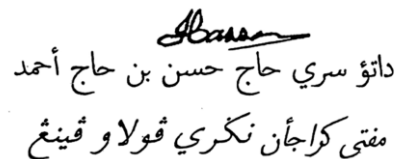 Hassan
داتؤ سري حاج حسن بن حاج أحمد
مفتي کراجأن نݢري ڤولاو ڤينڠ